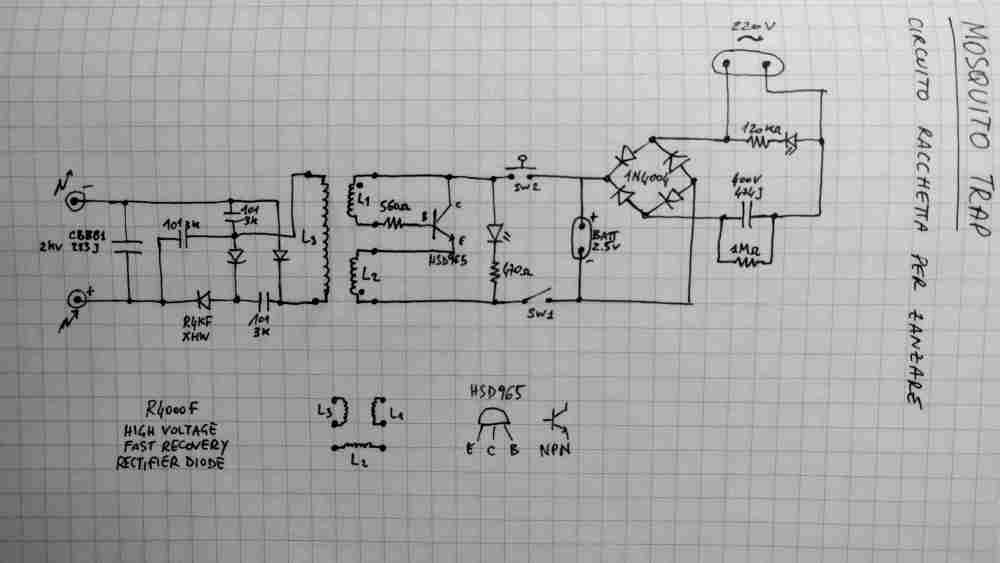 MOSQUITO TRAP
CIRCUITO RACCHETTA PER ZANZARE
220V
~
120KΩ
400V
474J
1MΩ
1N4004
SW2
BATT
2.5V
+
-
SW1
470Ω
L1
560Ω
B
C
E
HSD965
L2
L3
101
3K
101
3K
101
3K
-
CBB81
223J
2KV
+
R4KF
XHW
R4000F
HIGH VOLTAGE
FAST RECOVERY
RECTIFIER DIODE
L3
L1
L2
HSD965
E C B
NPN